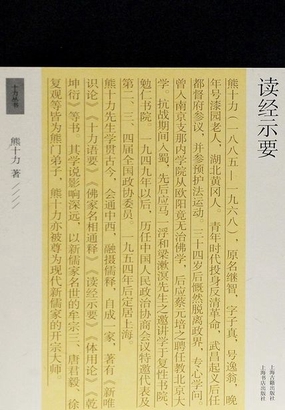 读经示要
十力丛书
熊十力 著
熊十力(一八八五—一九六八),原名继智,字子真,号逸翁,晚
年号漆园老人,湖北黄冈人。青年时代投身反清革命,武昌起义后任
都督府参议,并参预护法运动。三十四岁后慨然脱离政界,专心学问。
曾入南京支那内学院从欧阳竟无治佛学,后应蔡元培之聘任教北京大
学。抗战期间入蜀,先后应马一浮和梁漱溟先生之邀讲学于复性书院、
勉仁书院。一九四九年以后,历任中国人民政治协商会议特邀代表及
第二、三、四届全国政协委员。一九五四年后定居上海。
熊十力先生学贯古今,会通中西,融摄儒释,自成一家,著有《新唯
识论》《十力语要》《佛家名相通释》《读经示要》《体用论》《乾
坤衍》等书,其学说影响深远。以新儒家名世的牟宗三、唐君毅、徐
复观等皆为熊门弟子,熊十力亦被尊为现代新儒家的开宗大师。
上海古籍出版社
上海书店出版社